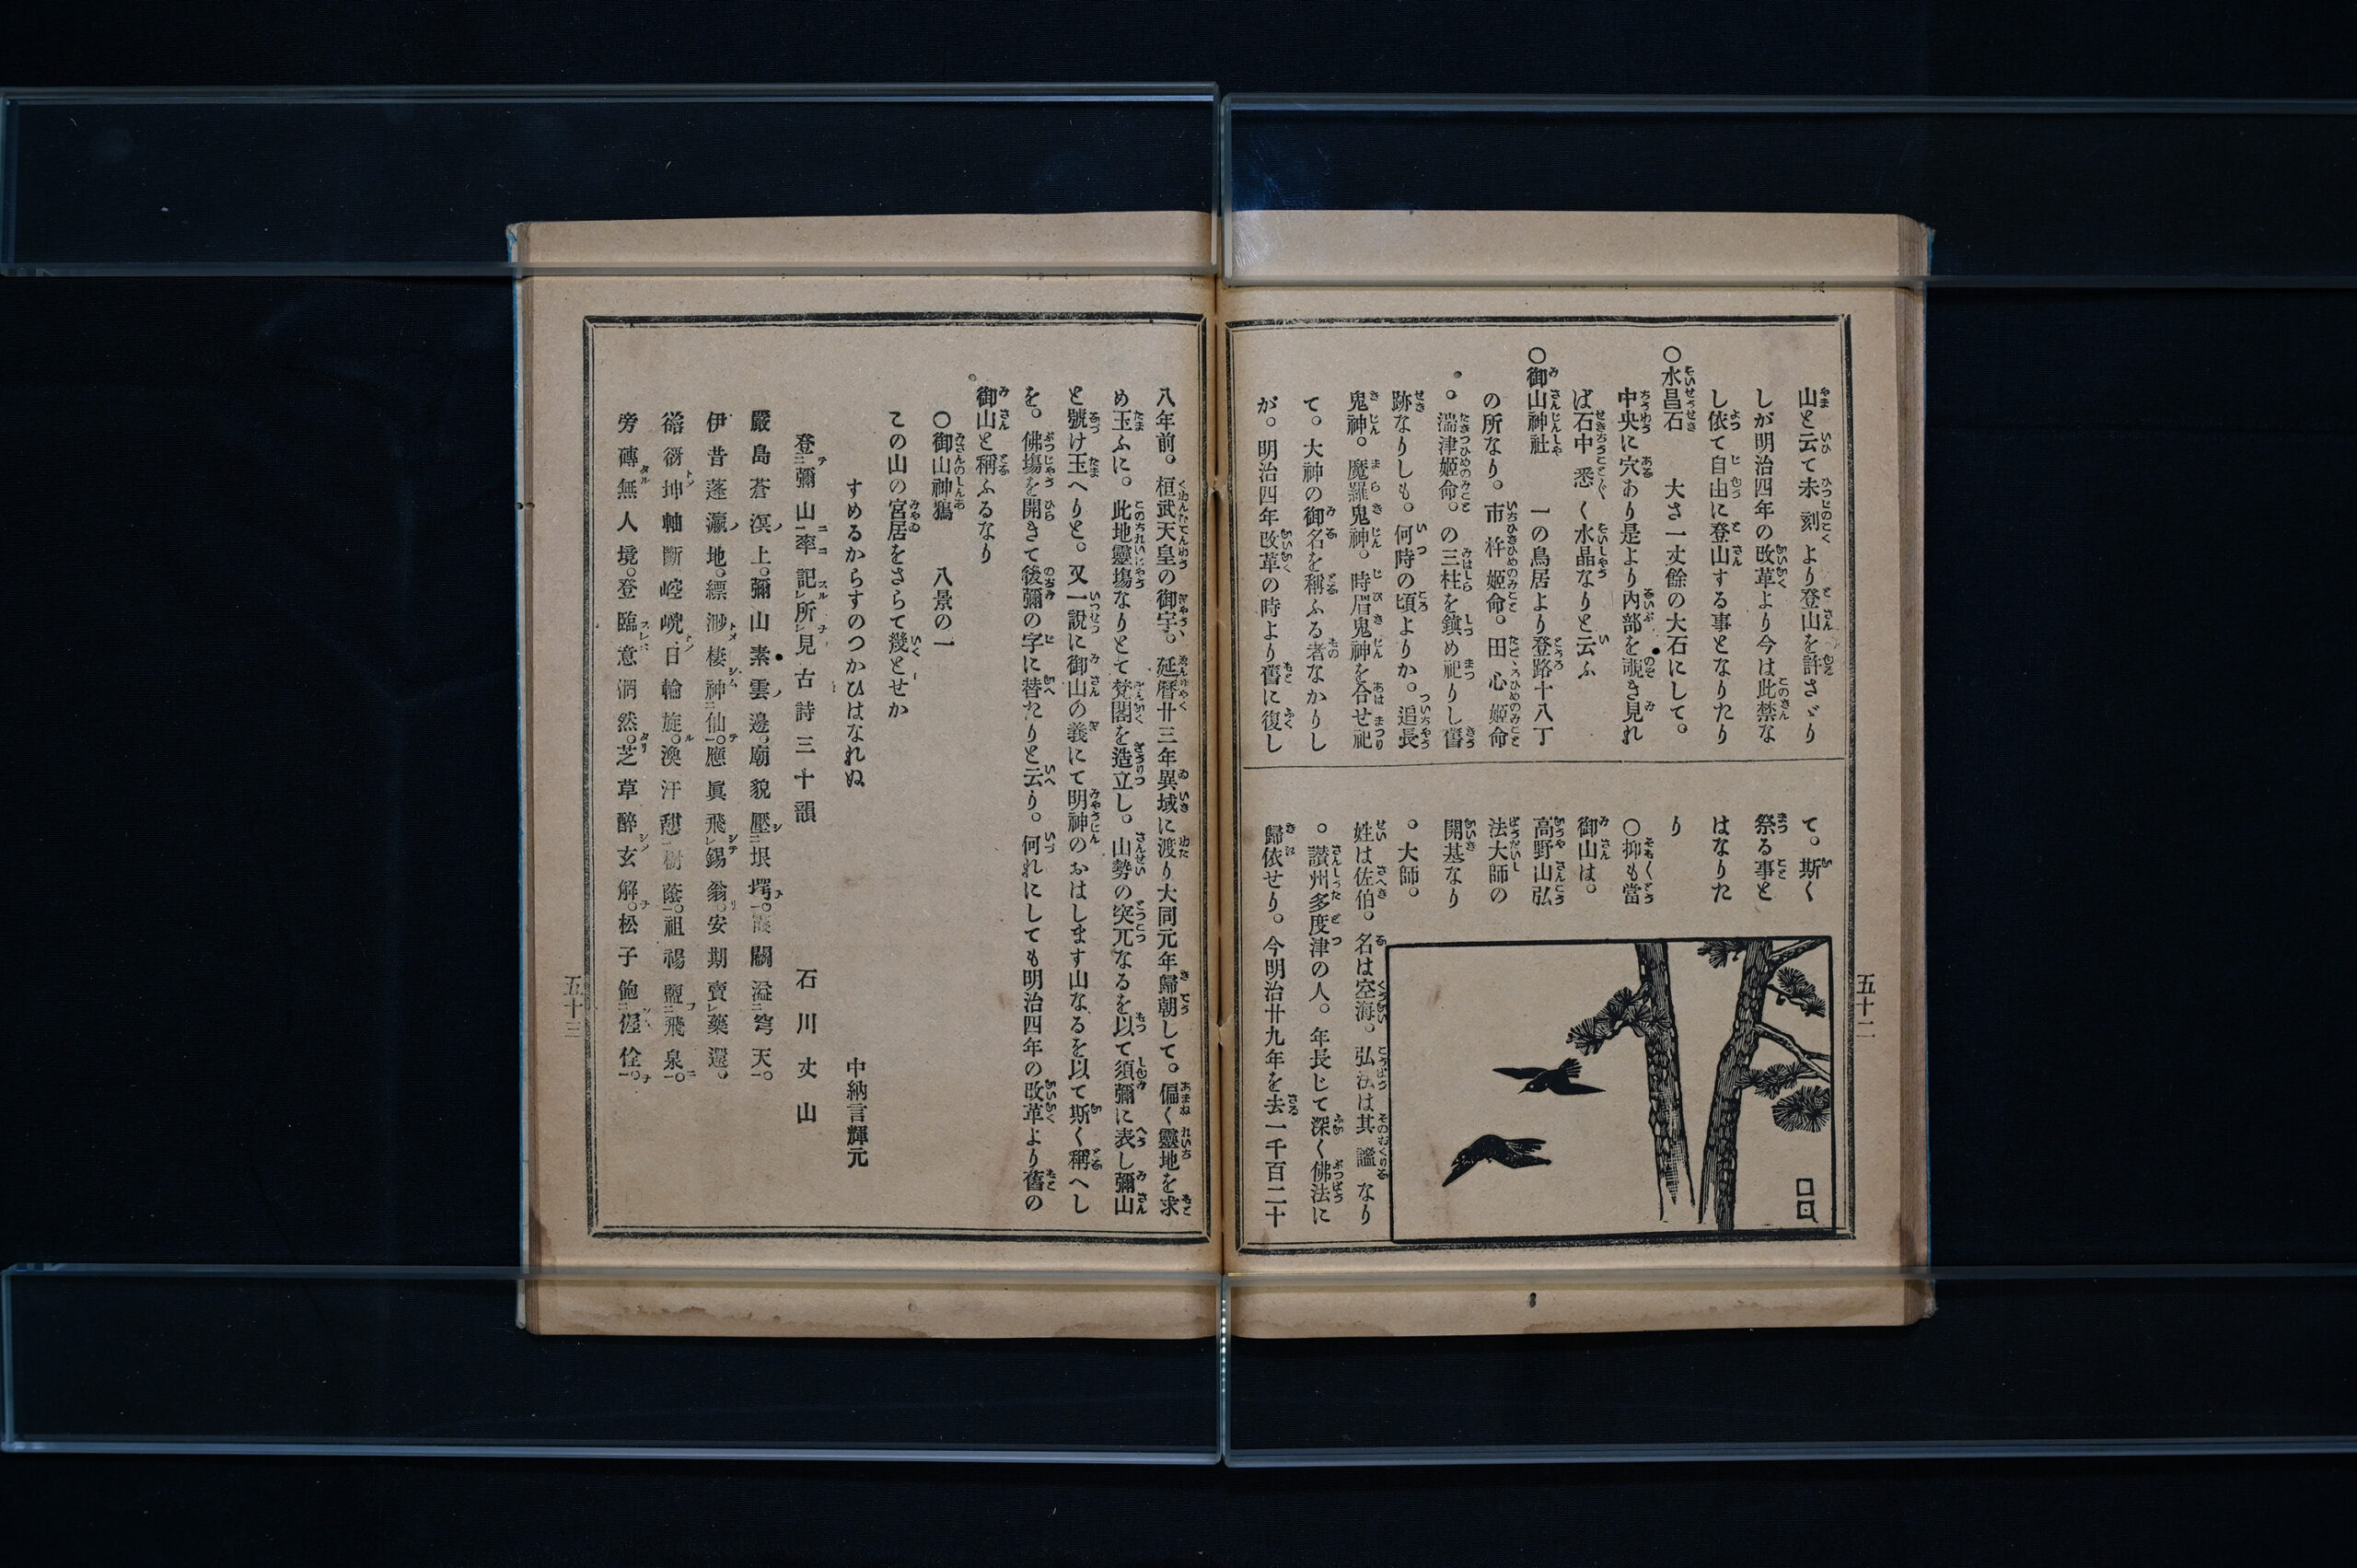 山と云て未刻より登山を許さゞり
しが明治四年の改革より今は此禁な
し依て自由に登山する事となりたり
〇水昌石　大さ一丈餘の大石にして。
中央に穴あり是より内部を覗き見れ
ば石中悉く水晶なりと云ふ
〇御山神社　一の鳥居より登路十八丁
の所なり。市杵姫命。田心姫命
。湍津姫命。の三柱を鎭め祀りし舊
跡なりしも。何時の頃よりか。追長
鬼神。魔羅鬼神。時眉鬼神を合せ祀
て。大神の御名を稱ふる者なかりし
が。明治四年改革の時より舊に復し
て。斯く
祭る事と
はなりた
り
〇抑も當
御山は。
高野山弘
法大師の
開基なり
。大師。
姓は佐伯。名は空海。弘法は其謚なり
。讃州多度津の人。年長じて深く佛法に
歸依せり。今明治廿九年を去一千百二十
五十二
八年前。桓武天皇の御宇。延暦廿三年異域に渡り大同元年歸朝して。偏く靈地を求
め玉ふに。此地靈塲なりとて梵閣を造立し。山勢の突兀なるを以て須彌に表し彌山
と號け玉へりと。又一説に御山の義にて明神のおはします山なるを以て斯く稱へし
を。佛塲を開きて後彌の字に替たりと云り。何れにしても明治四年の改革より舊の
御山と稱ふるなり
〇御山神鴉　八景の一
この山の宮居をさらて幾とせか
すめるからすのつかひはなれぬ
中納言輝元
登彌山率記所見古詩三十韻　石川丈山
嚴島蒼溟上。彌山素雲邊。廟貌壓垠堮。霞關溢穹天。
伊昔蓬瀛地。縹渺棲神仙。應眞飛錫翁。安期賣藥還。
谽谺坤軸斷崆峴日輪旋。渙汗憇樹蔭。祖裼盥飛泉。
旁礴無人境。登臨意洒然。芝草醉玄解。松子飽偓佺。
五十三